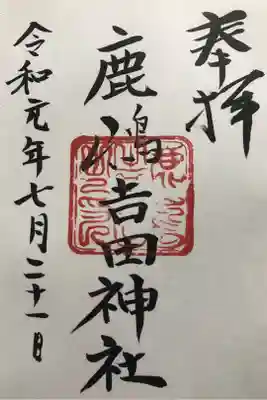 奉拝
鹿嶋吉田神社
令和元年七月二十一日